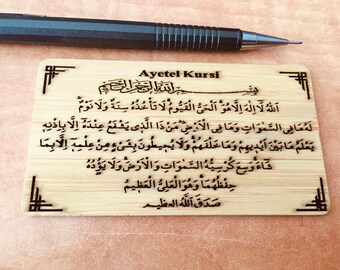 Ayetel Kursi
بِسْمِ اللّٰهِ الرَّحْمٰنِ الرَّحِيمِ
اَللّٰهُ لَا اِلٰهَ اِلَّا هُوَ اَلْحَيُّ الْقَيُّومُ لَا تَأْخُذُهُ سِنَةٌ وَلَا نَوْمٌ
لَهُ مَا فِي السَّمٰوَاتِ وَمَا فِي الْاَرْضِ مَنْ ذَا الَّذِي يَشْفَعُ عِنْدَهُ اِلَّا بِاِذْنِهِ
يَعْلَمُ مَا بَيْنَ اَيْدِيهِمْ وَمَا خَلْفَهُمْ وَلَا يُحِيطُونَ بِشَيْءٍ مِنْ عِلْمِهِ اِلَّا بِمَا
شَاءَ وَسِعَ كُرْسِيُّهُ السَّمٰوَاتِ وَالْاَرْضَ وَلَا يَؤُدُهُ
حِفْظُهُمَا وَهُوَ الْعَلِيُّ الْعَظِيمُ
صَدَقَ اللّٰهُ الْعَظِيم